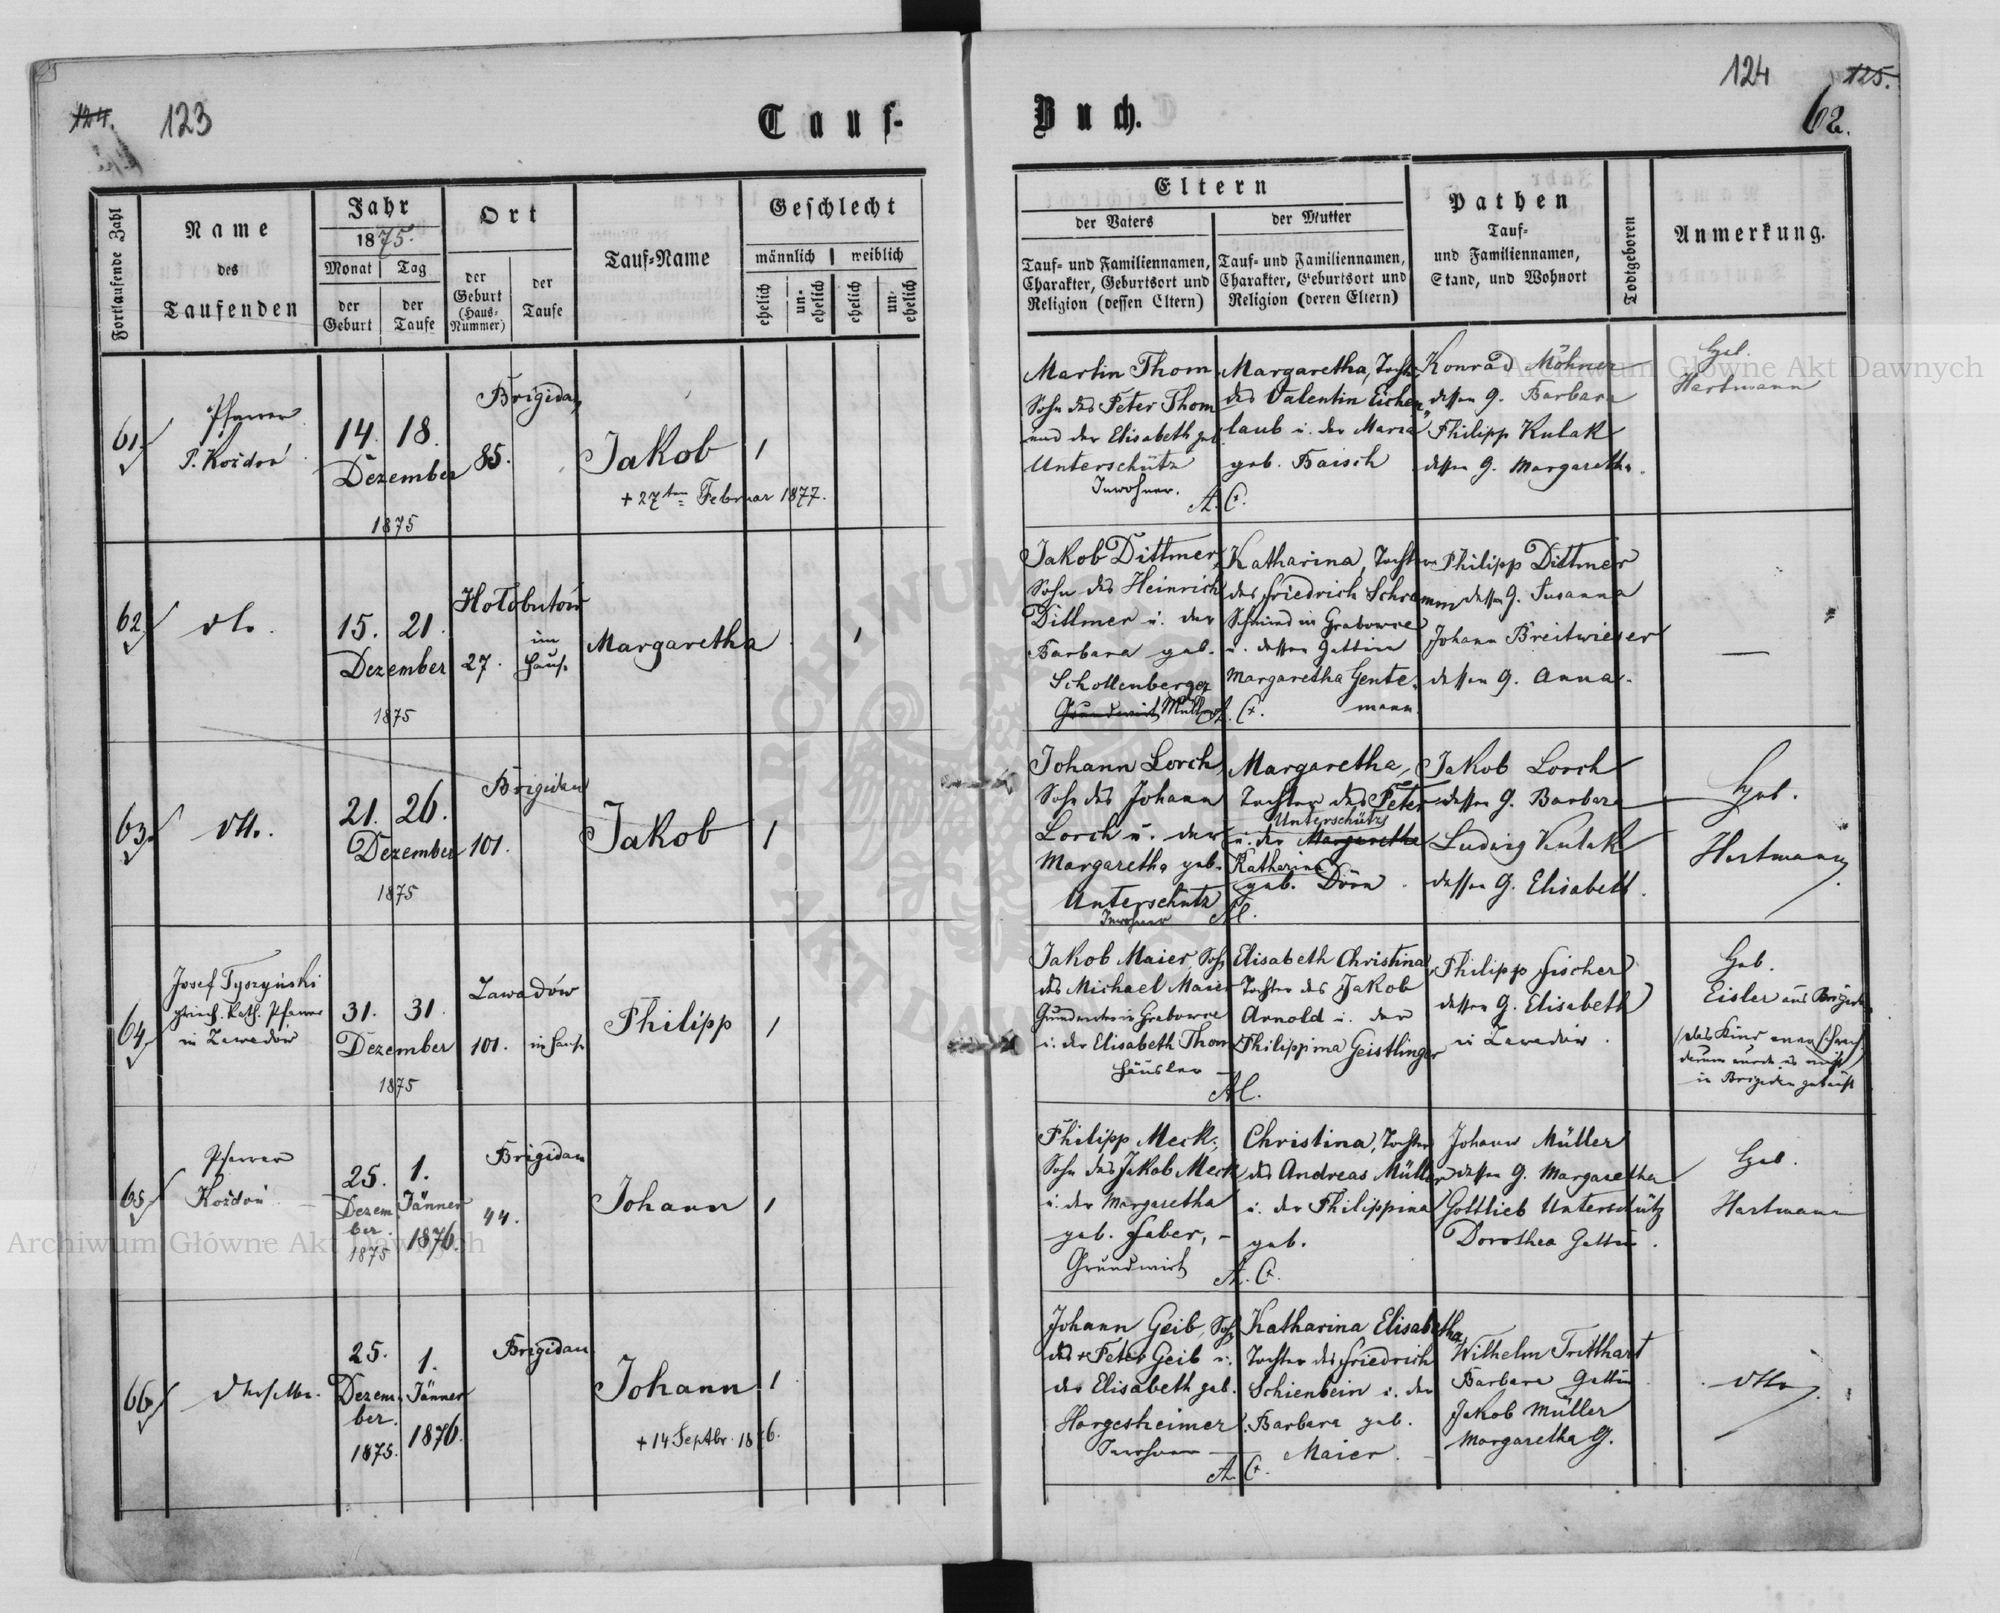 124.
123
Tauf-
Buch.
124
125.
62.
Fortlaufende Zahl
Name
des
Taufenden
Jahr
1875.
Monat
Tag
der
Geburt
der
Taufe
Ort
der
Geburt
(Haus-
Nummer)
der
Taufe
Tauf-Name
Geschlecht
männlich
weiblich
ehelich
un-
ehelich
ehelich
un-
ehelich
Eltern
der Vaters
der Mutter
Tauf- und Familiennamen,
Charakter, Geburtsort und
Religion (dessen Eltern)
Tauf- und Familiennamen,
Charakter, Geburtsort und
Religion (deren Eltern)
Pathen
Tauf-
und Familiennamen,
Stand, und Wohnort
Todtgeboren
Anmerkung.
61.
Pfarrer
14. 18.
Dezember
1875
Brigidau
85.
Jakob
+ 27ten Februar 1877.
1
Martin Thom
Sohn des Peter Thom
und der Elisabeth geb.
Unterschütz
Inwohner.
Margaretha, Tocht.
des Valentin Eichen-
laub u. der Maria
geb. Baisch
A. C.
Konrad Möhner
dessen G. Barbara
Philipp Kulak
dessen G. Margaretha.
Geb.
Hartmann
62.
dto.
15. 21.
Dezember
1875
Hołobutów
27.
im
Hause
Margaretha
1
Jakob Dittmer,
Sohn des Heinrich
Dittmer u. der
Barbara geb.
Schollenberger
Grundwirt Müller
Katharina, Tochter
des Friedrich Schramm
Schmied in Grabowce
u. dessen Gattin
Margaretha Gente-
mann.
A. C.
Philipp Dittmer
dessen G. Susanna
Johann Breitwieser
dessen G. Anna.
—
63.
dtto.
21. 26.
Dezember
1875
Brigidau
101.
Jakob
1
Johann Lorch,
Sohn des Johann
Lorch u. der
Margaretha geb.
Unterschütz
Inwohner
Margaretha,
Tochter des Peter
Unterschütz
u. der Margaretha
Katharina
geb. Dörn.
Jakob Lorch
dessen G. Barbara
Ludwig Kulak
dessen G. Elisabeth.
Geb.
Hartmann.
64.
Josef Tyszyński
griech. kath. Pfarrer
in Zawadów
31. 31.
Dezember
1875
Zawadów
101.
im Hause
Philipp
1
Jakob Maier, Sohn
des Michael Maier
Grundwirt in Grabowce
u. der Elisabeth Thom
Häusler
Elisabeth Christina
Tochter des Jakob
Arnold u. der
Philippina Geistlinger
Philipp Fischer
dessen G. Elisabeth
in Zawadów.
Geb.
Eisler aus Brigidau
(das Kind war schwach
darum wurde es nicht
in Brigidau getauft
65.
Pfarrer
25.
Dezem
ber.
1875
1.
Jänner
1876.
Brigidau
44.
Johann
1
Philipp Meck,
Sohn des Jakob Meck
u. der Margaretha
geb. Faber,
Grundwirt
Christina, Tochter
des Andreas Müller
u. der Philippina
geb.
A. C.
Johann Müller
dessen G. Margaretha
Gottlieb Unterschütz
Dorothea Gattin.
Geb.
Hartmann
66.
derselbe.
25.
Dezem-
ber.
1875.
1.
Jänner
1876.
Brigidau
Johann
+ 14 Septbr. 1876.
1
Johann Geib, Sohn
des + Peter Geib u.
der Elisabeth geb.
Horgesheimer
Inwohner
Katharina Elisabetha,
Tochter des Friedrich
Schienbein u. der
Barbara geb.
Maier.
A. C.
Wilhelm Tritthart
Barbara Gattin
Jakob Müller
Margaretha G.
dtto.
Archiwum Główne Akt Dawnych
Archiwum Główne Akt Dawnych